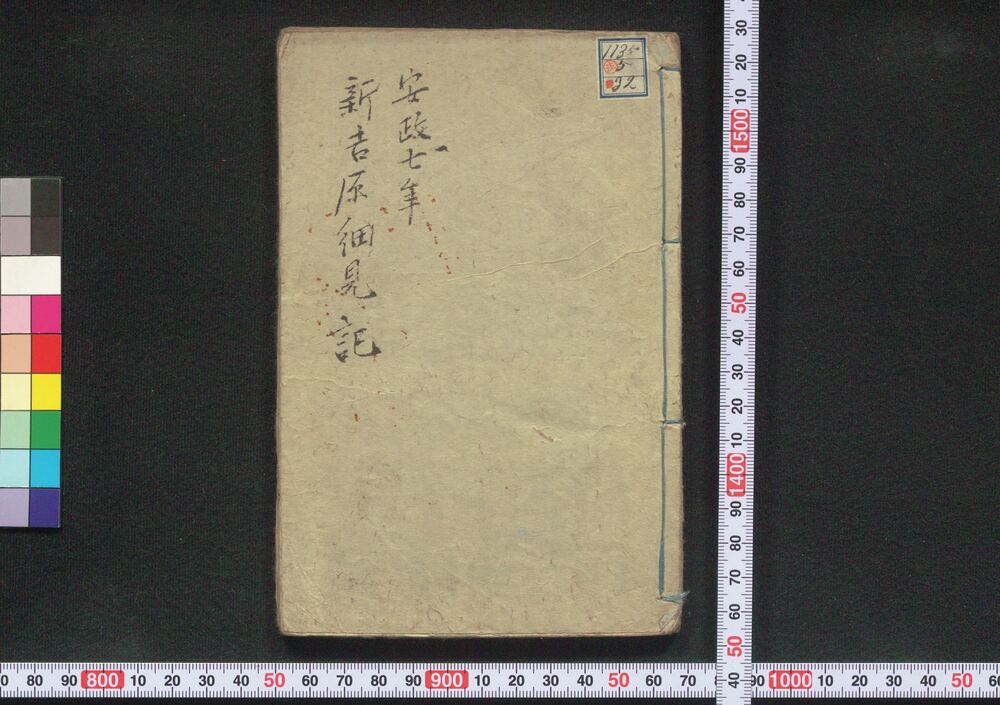 安政七年
新吉原細見記
1135
5
92
30
20
10
1500
90
80
70
60
50
40
30
20
10
1400
90
80
70
60
50
40
0 80 90 800 10 20 30 40 50 60 70 80 90 900 10 20 30 40 50 60 70 8 90 1000 10 20 30 40 50 60